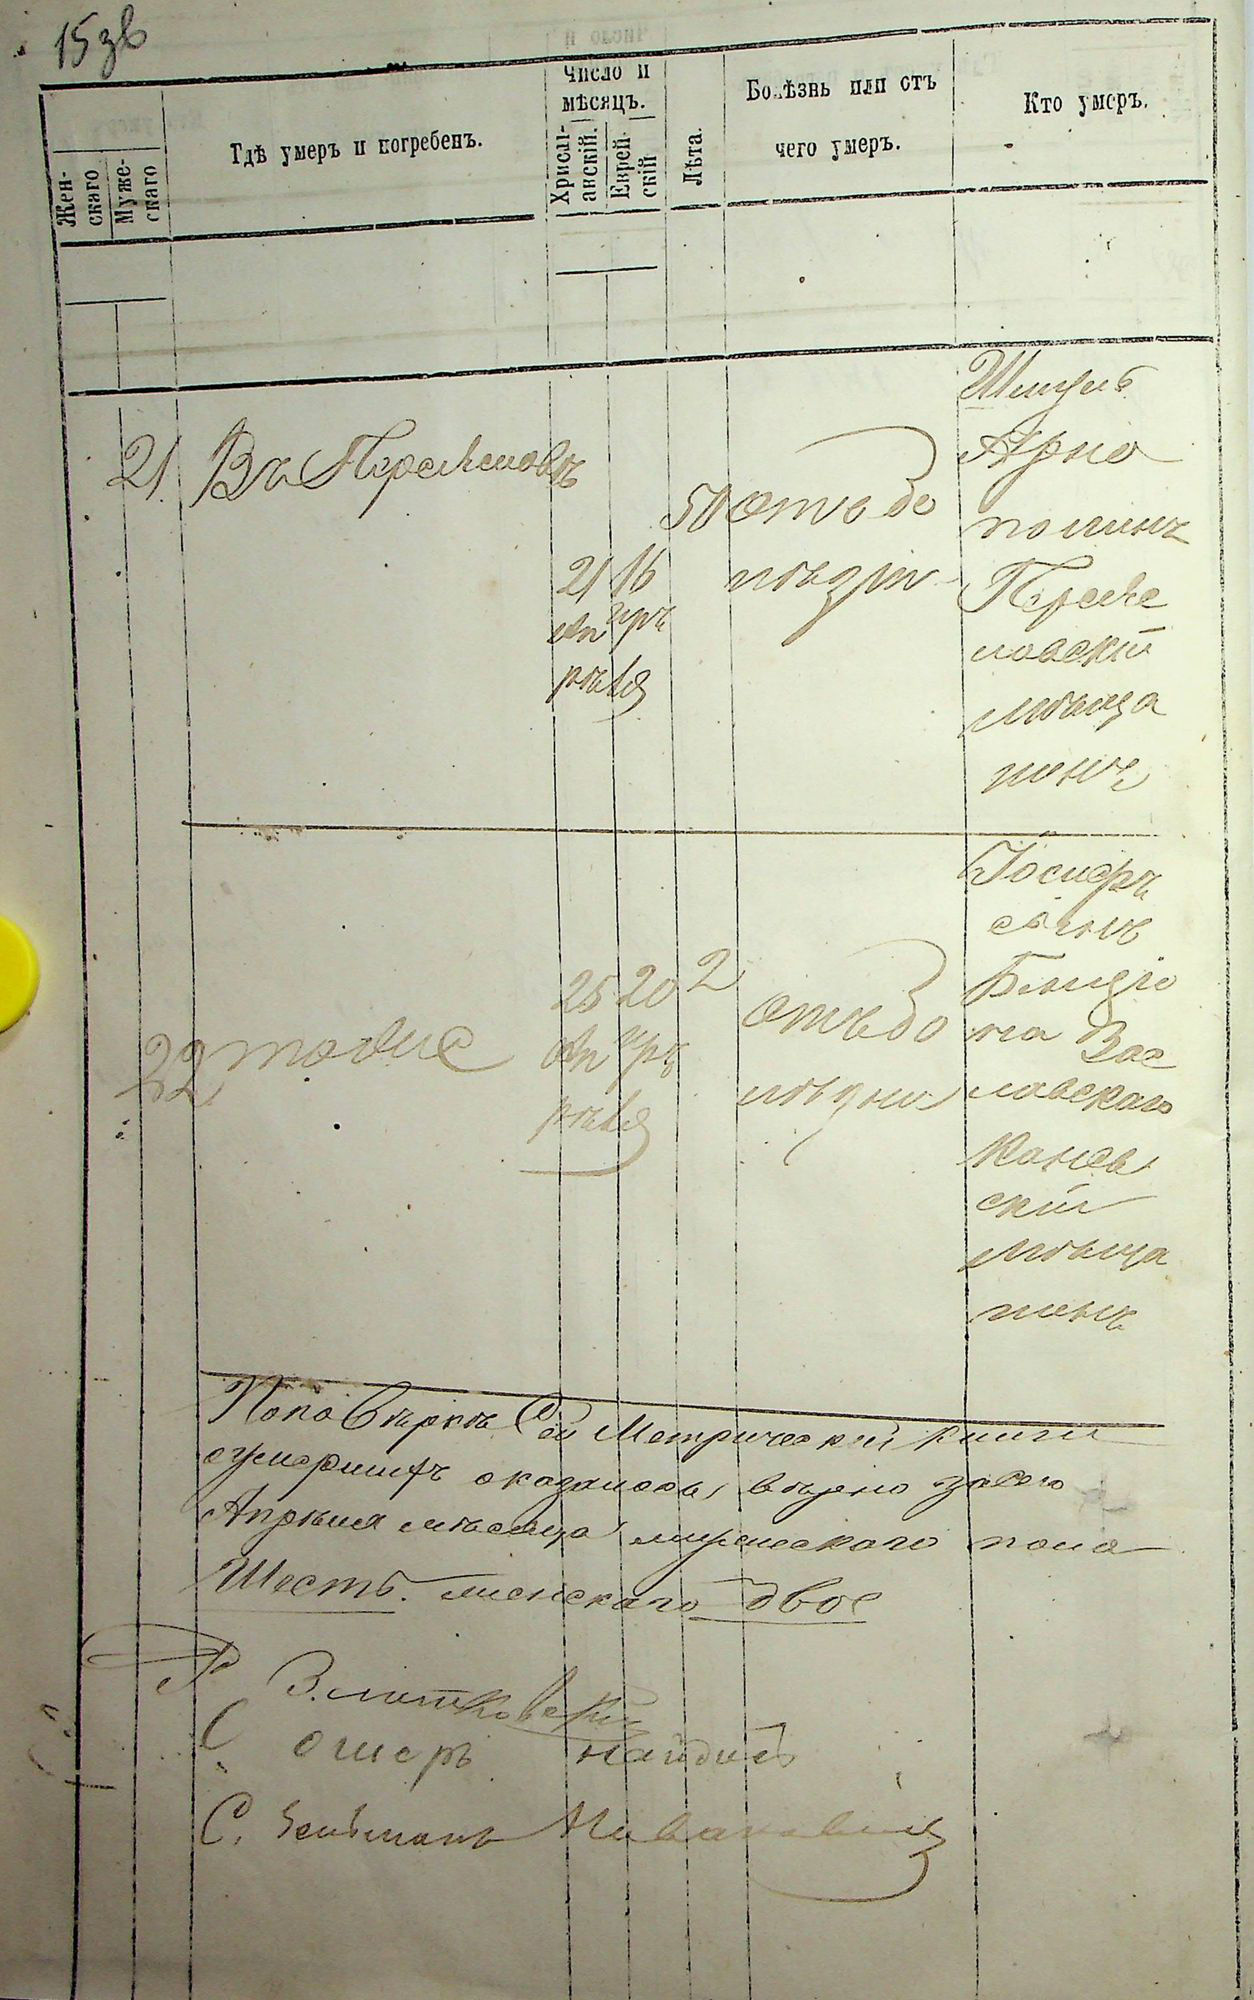 15 зв
Жен-
скаго
Муже-
скаго
Гдѣ умеръ и погребенъ.
Число и
мѣсяцъ.
Христі-
анскій.
Еврей-
скій
Лѣта.
Болѣзнь или отъ
чего умеръ.
Кто умеръ.
21
Въ Переяславѣ
21 16
Ап Иръ
рѣля
50
Отъ бо
лѣзни
Шмуль
Арно
польинъ
Переяс
лавскій
мѣща
нинъ
22
тоже
25 20
Ап Иръ
рѣля
2
Отъ бо
лѣзни
Іосифъ
сынъ
Бенціо
на Зас
лавскаго
Канев
скій
мѣща
нинъ
По повѣркѣ Сей Метрической книги
о умершихъ оказалось вѣрно за сего
Апрѣля мѣсяца мужескаго пола
Шесть. женскаго двое
Р. Златковскій
С. Ошеръ
С. Зельманъ